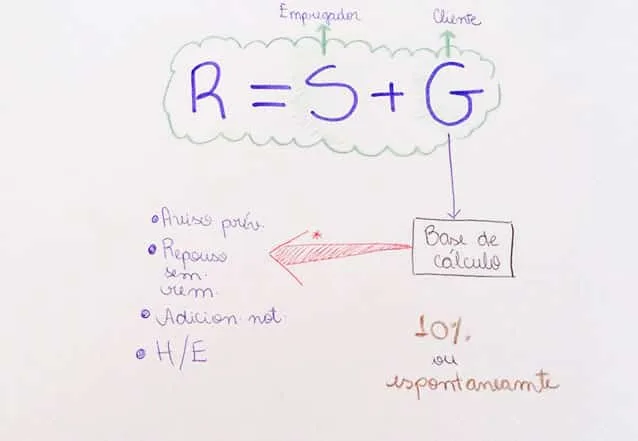 Empregador
Cliente
R = S + G
Base de
cálculo
*
• Aviso prév.
• Repouso
sem.
rem.
• Adicion. not.
• H/E
10%
ou
espontaneamte